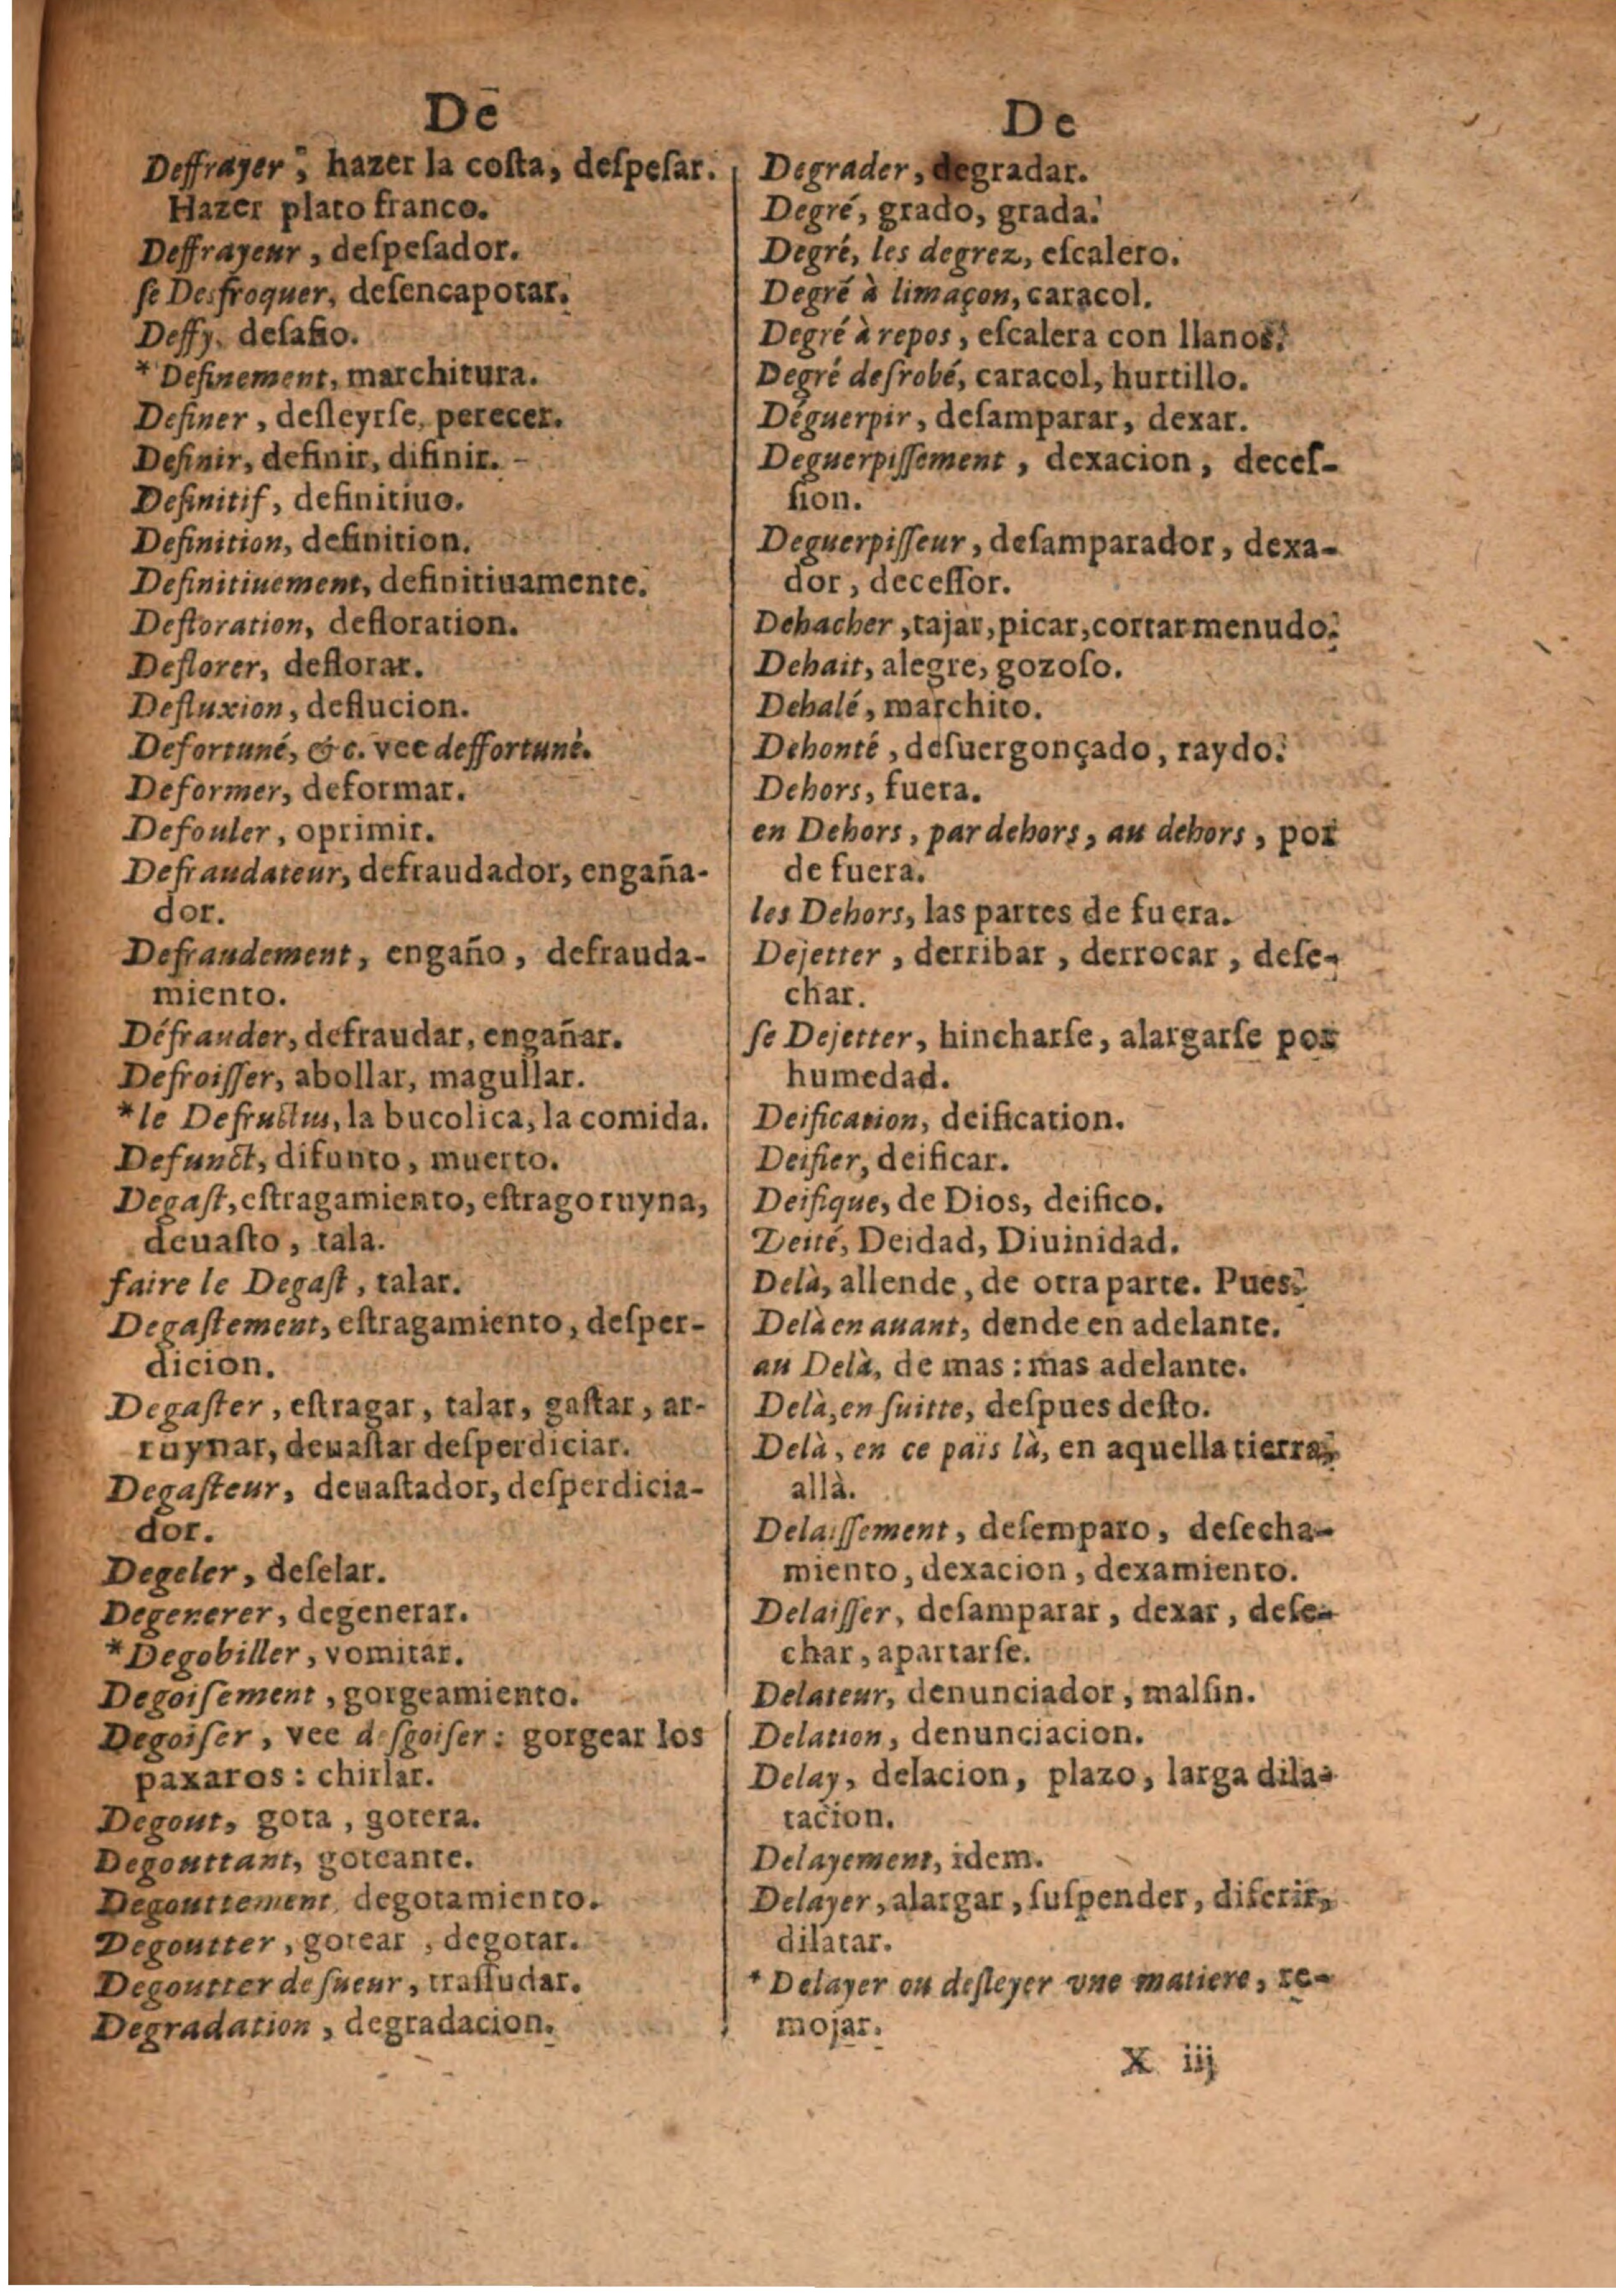 De
Deffrayer, hazer la costa, despesar.
Hazer plato franco.
Deffrayeur, despesador.
se Desfroquer, desencapotar.
Deffy, desafio.
*Definement, marchitura.
Definer, desleyrse, perecer.
Definir, definir, difinir.
Definitif, definitiuo.
Definition, definition.
Definitiuement, definitiuamente.
Defloration, defloration.
Deflorer, deflorar.
Defluxion, deflucion.
Defortuné, &c. vee deffortuné.
Deformer, deformar.
Defouler, oprimir.
Defraudateur, defraudador, engaña-
dor.
Defraudement, engaño, defrauda-
miento.
Défrauder, defraudar, engañar.
Defroisser, abollar, magullar.
*le Defructus, la bucolica, la comida.
Defunct, difunto, muerto.
Degast, estragamiento, estrago ruyna,
deuasto, tala.
faire le Degast, talar.
Degastement, estragamiento, desper-
dicion.
Degaster, estragar, talar, gastar, ar-
ruynar, deuastar desperdiciar.
Degasteur, deuastador, desperdicia-
dor.
Degeler, deselar.
Degenerer, degenerar.
*Degobiller, vomitar.
Degoisement, gorgeamiento.
Degoiser, vee desgoiser: gorgear los
paxaros: chirlar.
Degout, gota, gotera.
Degouttant, goteante.
Degouttement, degotamiento.
Degoutter, gotear, degotar.
Degoutter de sueur, trassudar.
Degradation, degradacion.
De
Degrader, degradar.
Degré, grado, grada.
Degré, les degrez, escalero.
Degré à limaçon, caracol.
Degré à repos, escalera con llanos.
Degré desrobé, caracol, hurtillo.
Déguerpir, desamparar, dexar.
Deguerpissement, dexacion, deces-
sion.
Deguerpisseur, desamparador, dexa-
dor, decessor.
Dehacher, tajar, picar, cortar menudo.
Dehait, alegre, gozoso.
Dehalé, marchito.
Dehonté, desuergonçado, raydo.
Dehors, fuera.
en Dehors, par dehors, au dehors, por
de fuera.
les Dehors, las partes de fuera.
Dejetter, derribar, derrocar, dese-
char.
se Dejetter, hincharse, alargarse por
humedad.
Deification, deification.
Deifier, deificar.
Deifique, de Dios, deifico.
Deité, Deidad, Diuinidad.
Delà, allende, de otra parte. Pues.
Delà en auant, dende en adelante.
au Delà, de mas: mas adelante.
Delà, en suitte, despues desto.
Delà, en ce païs là, en aquella tierra,
allà.
Delaissement, desemparo, desecha-
miento, dexacion, dexamiento.
Delaisser, desamparar, dexar, dese-
char, apartarse.
Delateur, denunciador, malsin.
Delation, denunciacion.
Delay, delacion, plazo, larga dila-
tacion.
Delayement, idem.
Delayer, alargar, suspender, diferir,
dilatar.
*Delayer ou desleyer vne matiere, re-
mojar.
X iij